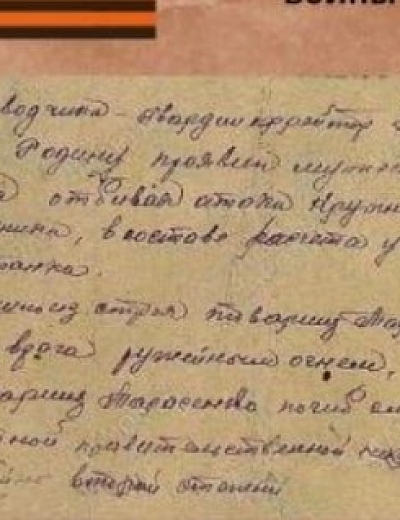 водчик - гвардии ефрейтор
Родину проявил муже
отбивая атаки крупн
в составе расчета у
танка.
из строя товарищ Та
врага ружейным огнем,
арищ Тарасенко погиб
ной правительственной на
второй степени